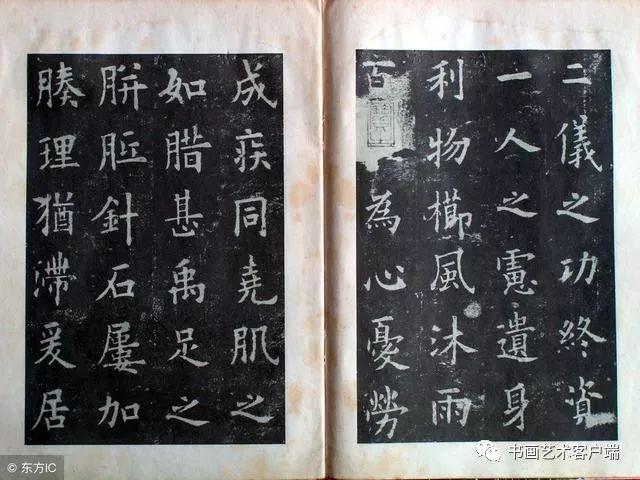 二儀之功終資
一人之慮遺身
利物櫛風沐雨
百為心憂勞
成疾同堯肌之
如腊甚禹足之
胼胝針石屢加
腠理猶滯爰居
书画艺术客户端
© 东方IC